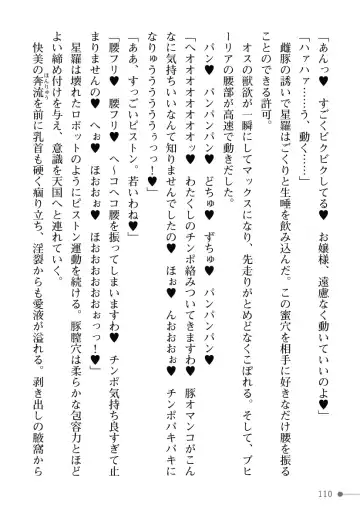 「あんっ♥　すごくビクビクしてる♥　お嬢様、遠慮なく動いていいのよ♥」
「ハァハァ……う、動く……」
雌豚の誘いで星羅はごくりと生唾を飲み込んだ。この蜜穴を相手に好きなだけ腰を振る
ことのできる許可。
オスの獣欲が一瞬にしてマックスになり、先走りがとめどなくこぼれる。そして、ブヒ
ーリアの腰部が高速で動きだした。
パン♥　パンパンパン♥　どちゅ♥　ずちゅ♥　パンパンパン♥
「へオオオオオオオッ♥　わたくしのチンポ絡みついてきますわ♥　豚オマンコがこん
なに気持ちいいなんて知りませんでした♥　ほぉ♥　んおおおぉ♥　チンポバキバキに
なりゅうううううぅぅっっ！♥」
「ああ、すっごいピストン。若いわね♥」
「腰フリ♥　腰フリ♥　へ～コヘコ腰を振ってしまいますわ♥　チンポ気持ち良すぎて止
まりませんの♥　へぉ♥　ほおおぉ♥　ほおおおおおおぉっっ！♥」
星羅は壊れたロボットのようにピストン運動を続ける。豚膣穴は柔らかな包容力とほど
よい締め付けを与え、意識を天国へと連れていく。
快美の奔流を前に乳首も硬く痼り立ち、淫裂からも愛液が溢れる。剥き出しの腋窩から
ほんりゅう
110